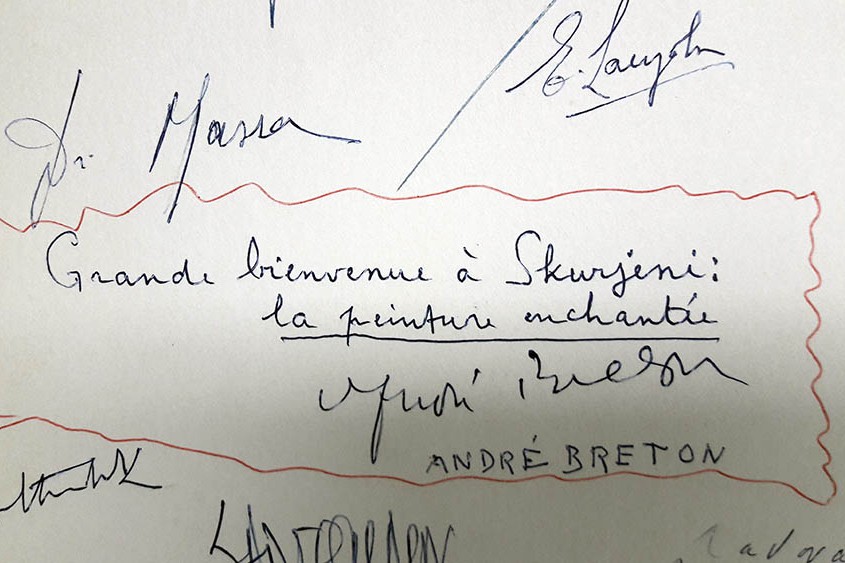 Dr. Massa
Grande bienvenue à Skurjeni:
la peinture enchantée
André Breton
ANDRÉ BRETON